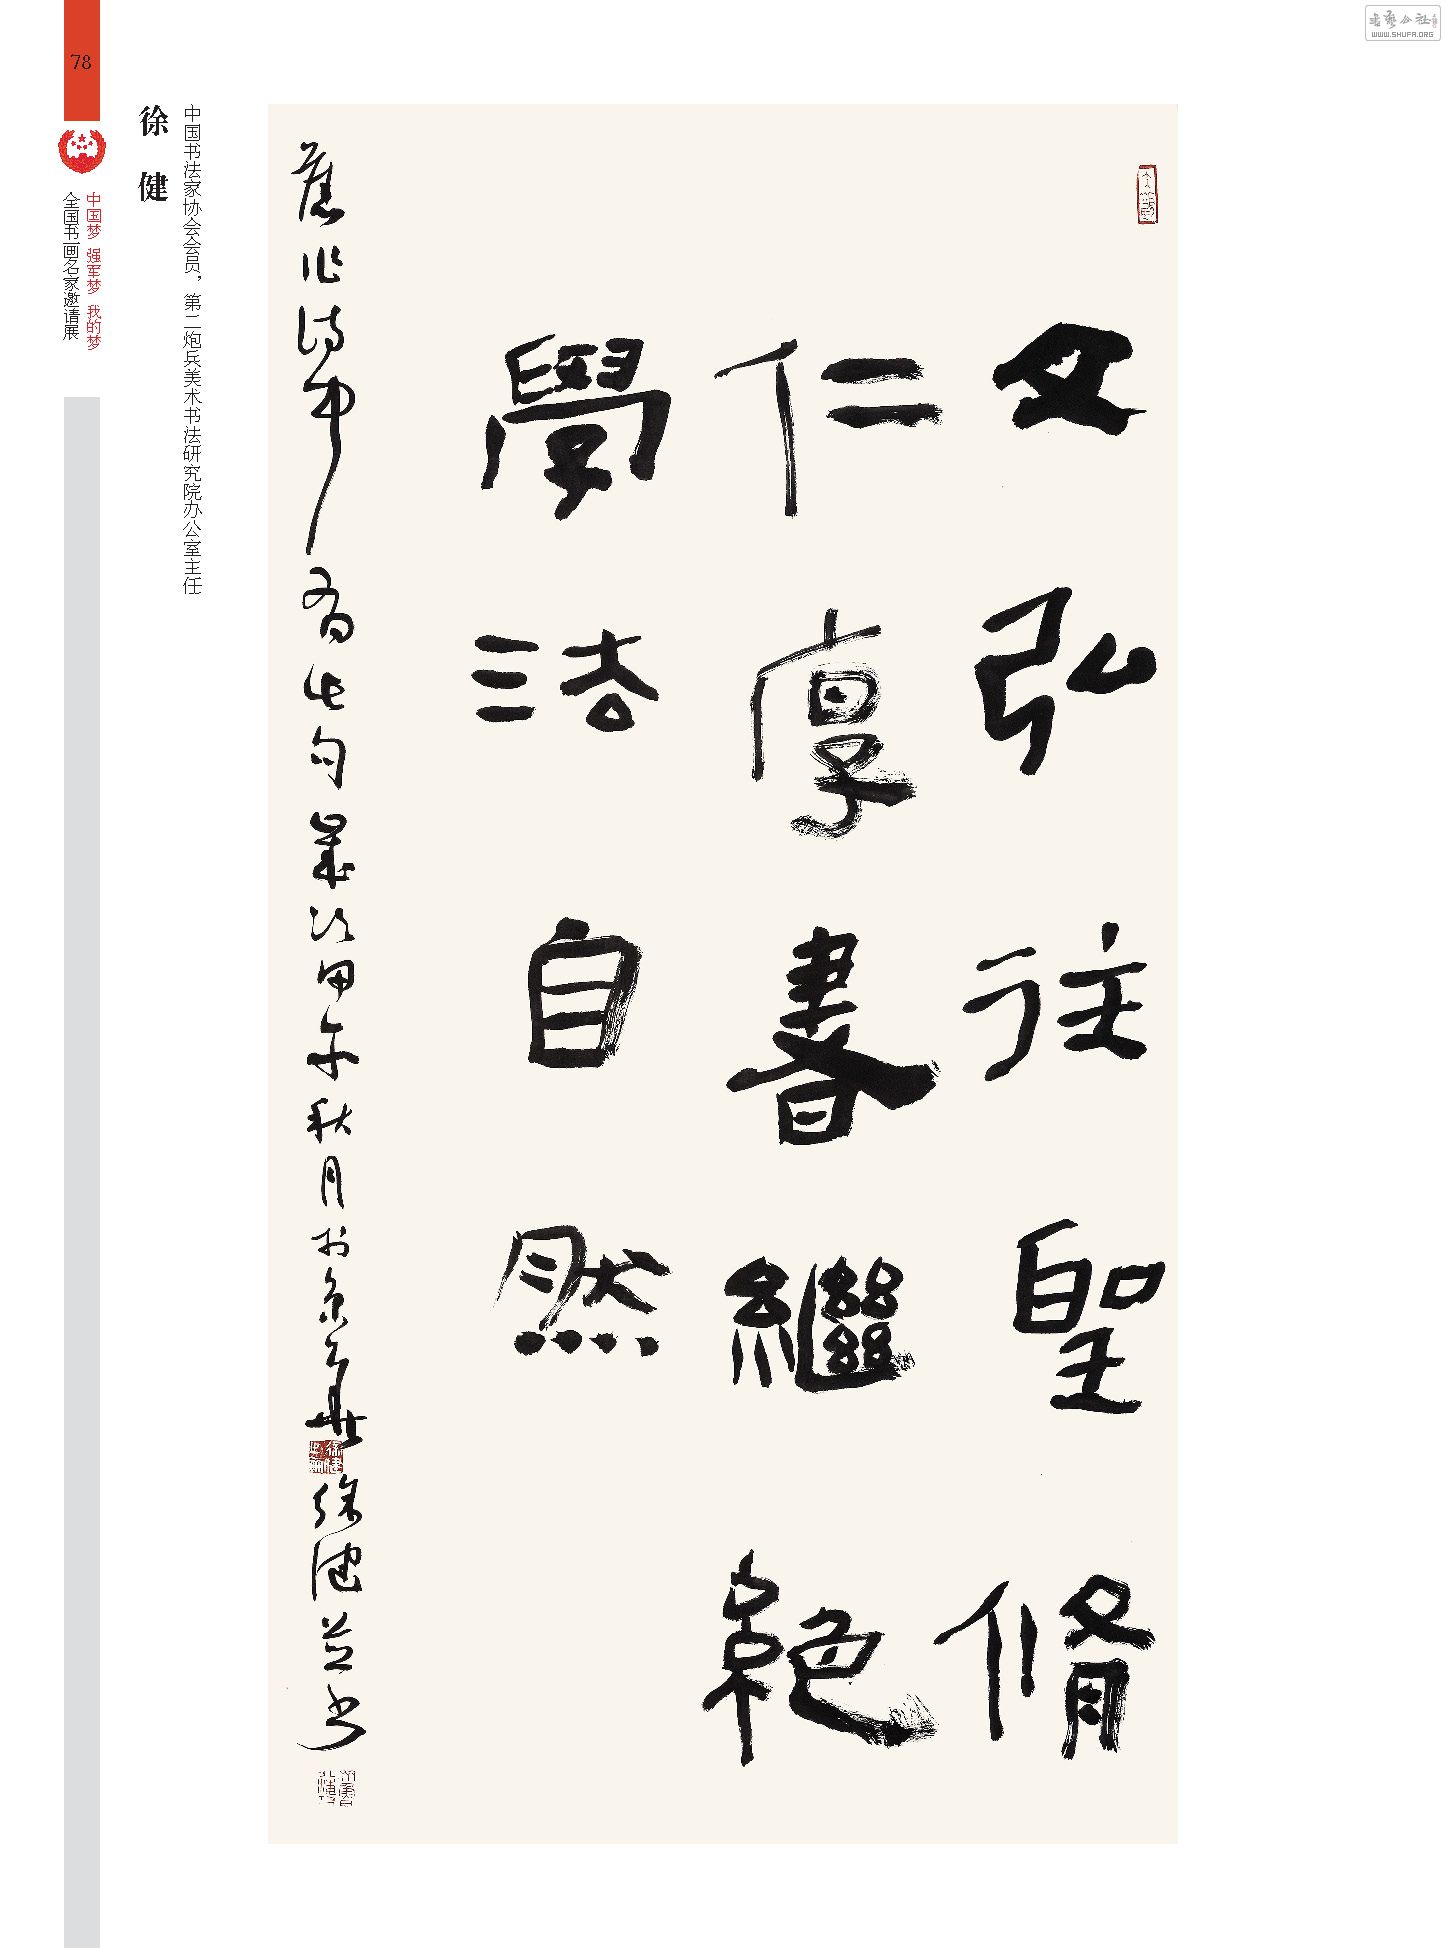 78
徐健
中国书法家协会会员，第二炮兵美术书法研究院办公室主任
中国梦 强军梦 我的梦
全国书画名家邀请展
文弘往聖脩
仁厚書繼絶
學法自然
舊作詩中有此句歲次甲午秋月於京華徐健并書
WWW.SHUFA.ORG